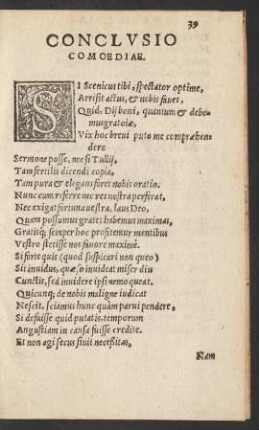 39
CONCLVSIO
COMOEDIAE.
SI Scenicus tibi, spectator optime,
Arrisit actus, & nobis faues,
Quid, Dij boni, quantum & debe-
mus gratiæ.
Vix hoc breui puto me compræhen-
dere
Sermone posse, nec si Tullij,
Tam fertilis dicendi copia,
Tam pura & elegans foret nobis oratio.
Nunc cum referre nec res nostra perferat,
Nec exigat fortuna uestra. laus Deo,
Quam possumus grates habemus maximas,
Gratisq́; semper hoc profitemur mentibus
Vestro stetisse nos fauore maximè.
Si forte quis (quod suspicari non queo)
Sit inuidus, quæso inuideat miser diu
Cunctis, sed inuidere ipsi nemo queat.
Quicunq; de nobis maligne iudicat
Nescit, sciamus hunc quàm parui pendere,
Si defuisse quid putatis, temporum
Angustiam in causa fuisse credite.
Et non agi secus siuit necessitas,
Nam